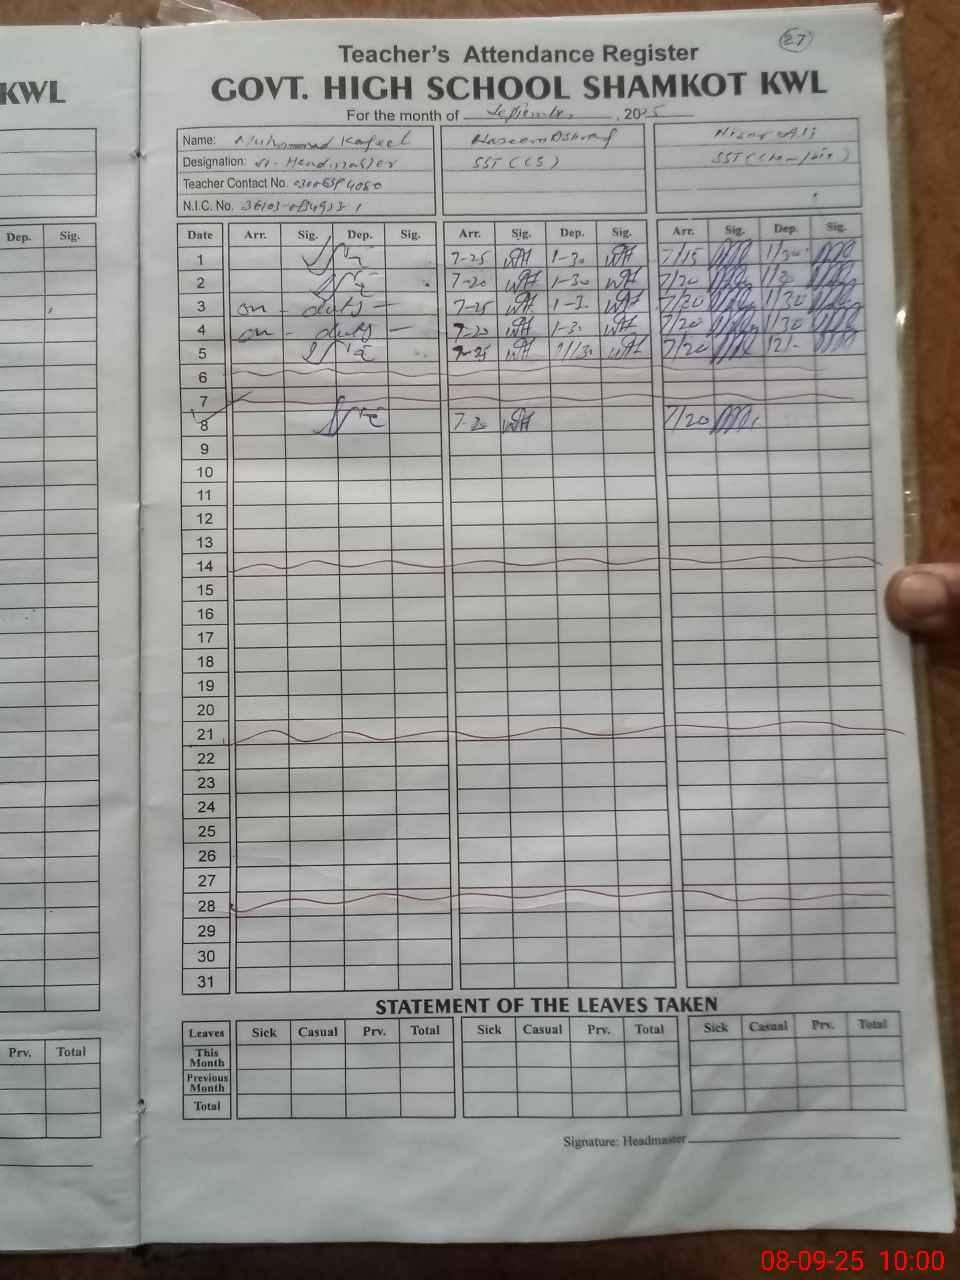 KWL
27
Teacher's Attendance Register
GOVT. HIGH SCHOOL SHAMKOT KWL
For the month of September, 2025
Name: Muhammad
Designation: Sr. Headmaster SST (CS) SST
Nisar Ali
Teacher Contact No.
N.I.C. No.
Dep. Sig.
Date Arr. Sig. Dep. Sig. Arr. Sig. Dep. Sig. Arr. Sig. Dep. Sig.
1 7-25 1-30 7/15 1/30
2 7-20 1-30 7/20 1/30
3 on - duty - 7-25 1-30 7/20 1/30
4 on - duty - 7-20 1-30 7/20 1/30
5 7-25 7/20 12/-
6
7
8 7-20 7/20
9
10
11
12
13
14
15
16
17
18
19
20
21
22
23
24
25
26
27
28
29
30
31
STATEMENT OF THE LEAVES TAKEN
Prv. Total
Leaves Sick Casual Prv. Total Sick Casual Prv. Total Sick Casual Prv. Total
This
Month
Previous
Month
Total
Signature: Headmaster
08-09-25 10:00